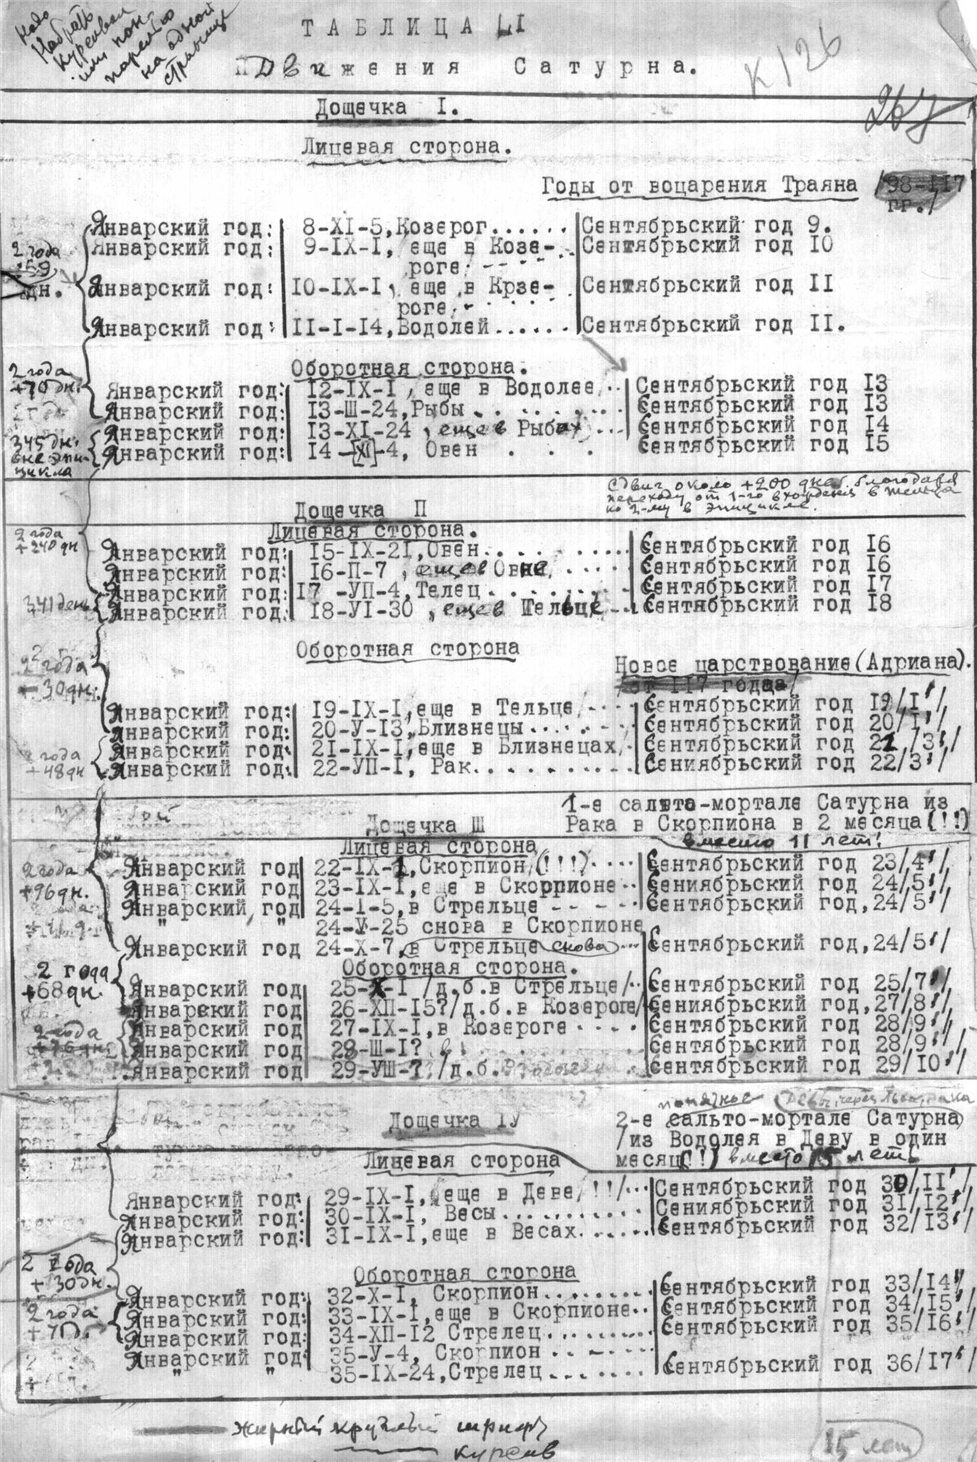 Надо
набрать
курсивом
или пон
парелью
на одной
странице
ТАБЛИЦА LI
Движения Сатурна.
К 126
Дощечка I.
Лицевая сторона.
Годы от воцарения Траяна /98-117
гг./
Январский год: 8-XI-5, Козерог...... Сентябрьский год 9.
2 года Январский год: 9-IX-I, еще в Козе- Сентябрьский год 10
роге.
дн. Январский год: 10-IX-I, еще в Крзе- Сентябрьский год II
роге.
Январский год: II-I-14, Водолей...... Сентябрьский год II.
Оборотная сторона.
2 года
+70 дн. Январский год: 12-IX-I, еще в Водолее.. Сентябрьский год 13
Январский год: 13-Ш-24, Рыбы . . . . . . . . Сентябрьский год 13
345 дн. Январский год: 13-XI-24, еще в Рыбах ... Сентябрьский год 14
вне эпи- Январский год: 14-XI-4, Овен . . . Сентябрьский год 15
цикла
Сдвиг около +200 дней благодаря
переходу от 1-го вхождения в Тельца
ко 2-му в эпицикле.
Дощечка П
Лицевая сторона.
2 года
+240 дн Январский год: 15-IX-21, Овен.......... Сентябрьский год 16
Январский год: 16-П-7, еще в Овне, ..... Сентябрьский год 16
Январский год: 17-УП-4, Телец......... Сентябрьский год 17
341 день Январский год: 18-УI-30, еще в Тельце ... Сентябрьский год 18
Оборотная сторона
Новое царствование (Адриана).
/от 117 года/
2 года
30 дн.
Январский год: 19-IX-I, еще в Тельце/.... Сентябрьский год 19/1'/
Январский год: 20-У-13, Близнецы...... Сентябрьский год 20/1'/
2 года Январский год: 21-IX-I, еще в Близнецах, Сентябрьский год 22, /3'/
+48 дн Январский год: 22-УП-I, Рак.......... Сениябрьский год 22/3'/
1-е сальто-мортале Сатурна из
Дощечка Ш Рака в Скорпиона в 2 месяца (!!)
вместо 11 лет!
Лицевая сторона
2 года Январский год 22-IX-1, Скорпион/(!!!)..... Сентябрьский год 23/4'/
+96 дн. Январский год 23-IX-I, еще в Скорпионе.. Сениябрьский год 24/5'/
Январский год 24-1-5, в Стрельце - - - - Сентябрьский год, 24/5'/
" " 24-У-25 снова в Скорпионе
Январский год 24-X-7, в Стрельце снова ... Сентябрьский год, 24/5'/
Оборотная сторона.
2 года
+68 дн. Январский год 25-X-I /д.б.в Стрельце/.. Сентябрьский год 25/7'/
Январский год 26-ХП-15?/д.б.в Козероге/ Сениябрьский год, 27/8'/
2 года Январский год 27-IX-I, в Козероге .... Сентябрьский год 28/9'/
Январский год 28-Ш-I? Сентябрьский год 28/9'/
Январский год 29-УШ-7?/д.б. Сентябрьский год 29/10'/
Дощечка IУ
2-е сальто-мортале Сатурна
/из Водолея в Деву в один
месяц(!!) вместо 15 лет
Лицевая сторона
Январский год: 29-IX-I, /еще в Деве/!!/... Сентябрьский год 30/11'/
Январский год: 30-IX-I, Весы ........... Сениябрьский год 31/12'/
Январский год: 31-IX-I, еще в Весах....... Сентябрьский год 32/13'/
2 года
+30 дн.
Оборотная сторона
Январский год: 32-X-I, Скорпион........ Сентябрьский год 33/14'/
2 года Январский год: 33-IX-I, еще в Скорпионе.. Сентябрьский год 34/15'/
Январский год: 34-ХП-12 Стрелец......... Сентябрьский год 35/16'/
Январский год: 35-У-4, Скорпион .. - ....
" " 35-IX-24, Стрелец....... Сентябрьский год 36/17'/
Жирный круглый шрифт
курсив
15 лет